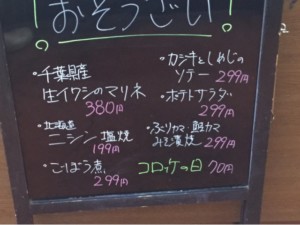 ！おそうざい！
・千葉県産
生イワシのマリネ
380円
・北海道
ニシン塩焼
199円
・ごぼう煮
299円
・カジキとしめじの
ソテー 299円
・ポテトサラダ
299円
・ぶりカマ・鮭カマ
みそ漬焼 299円
コロッケの日 70円